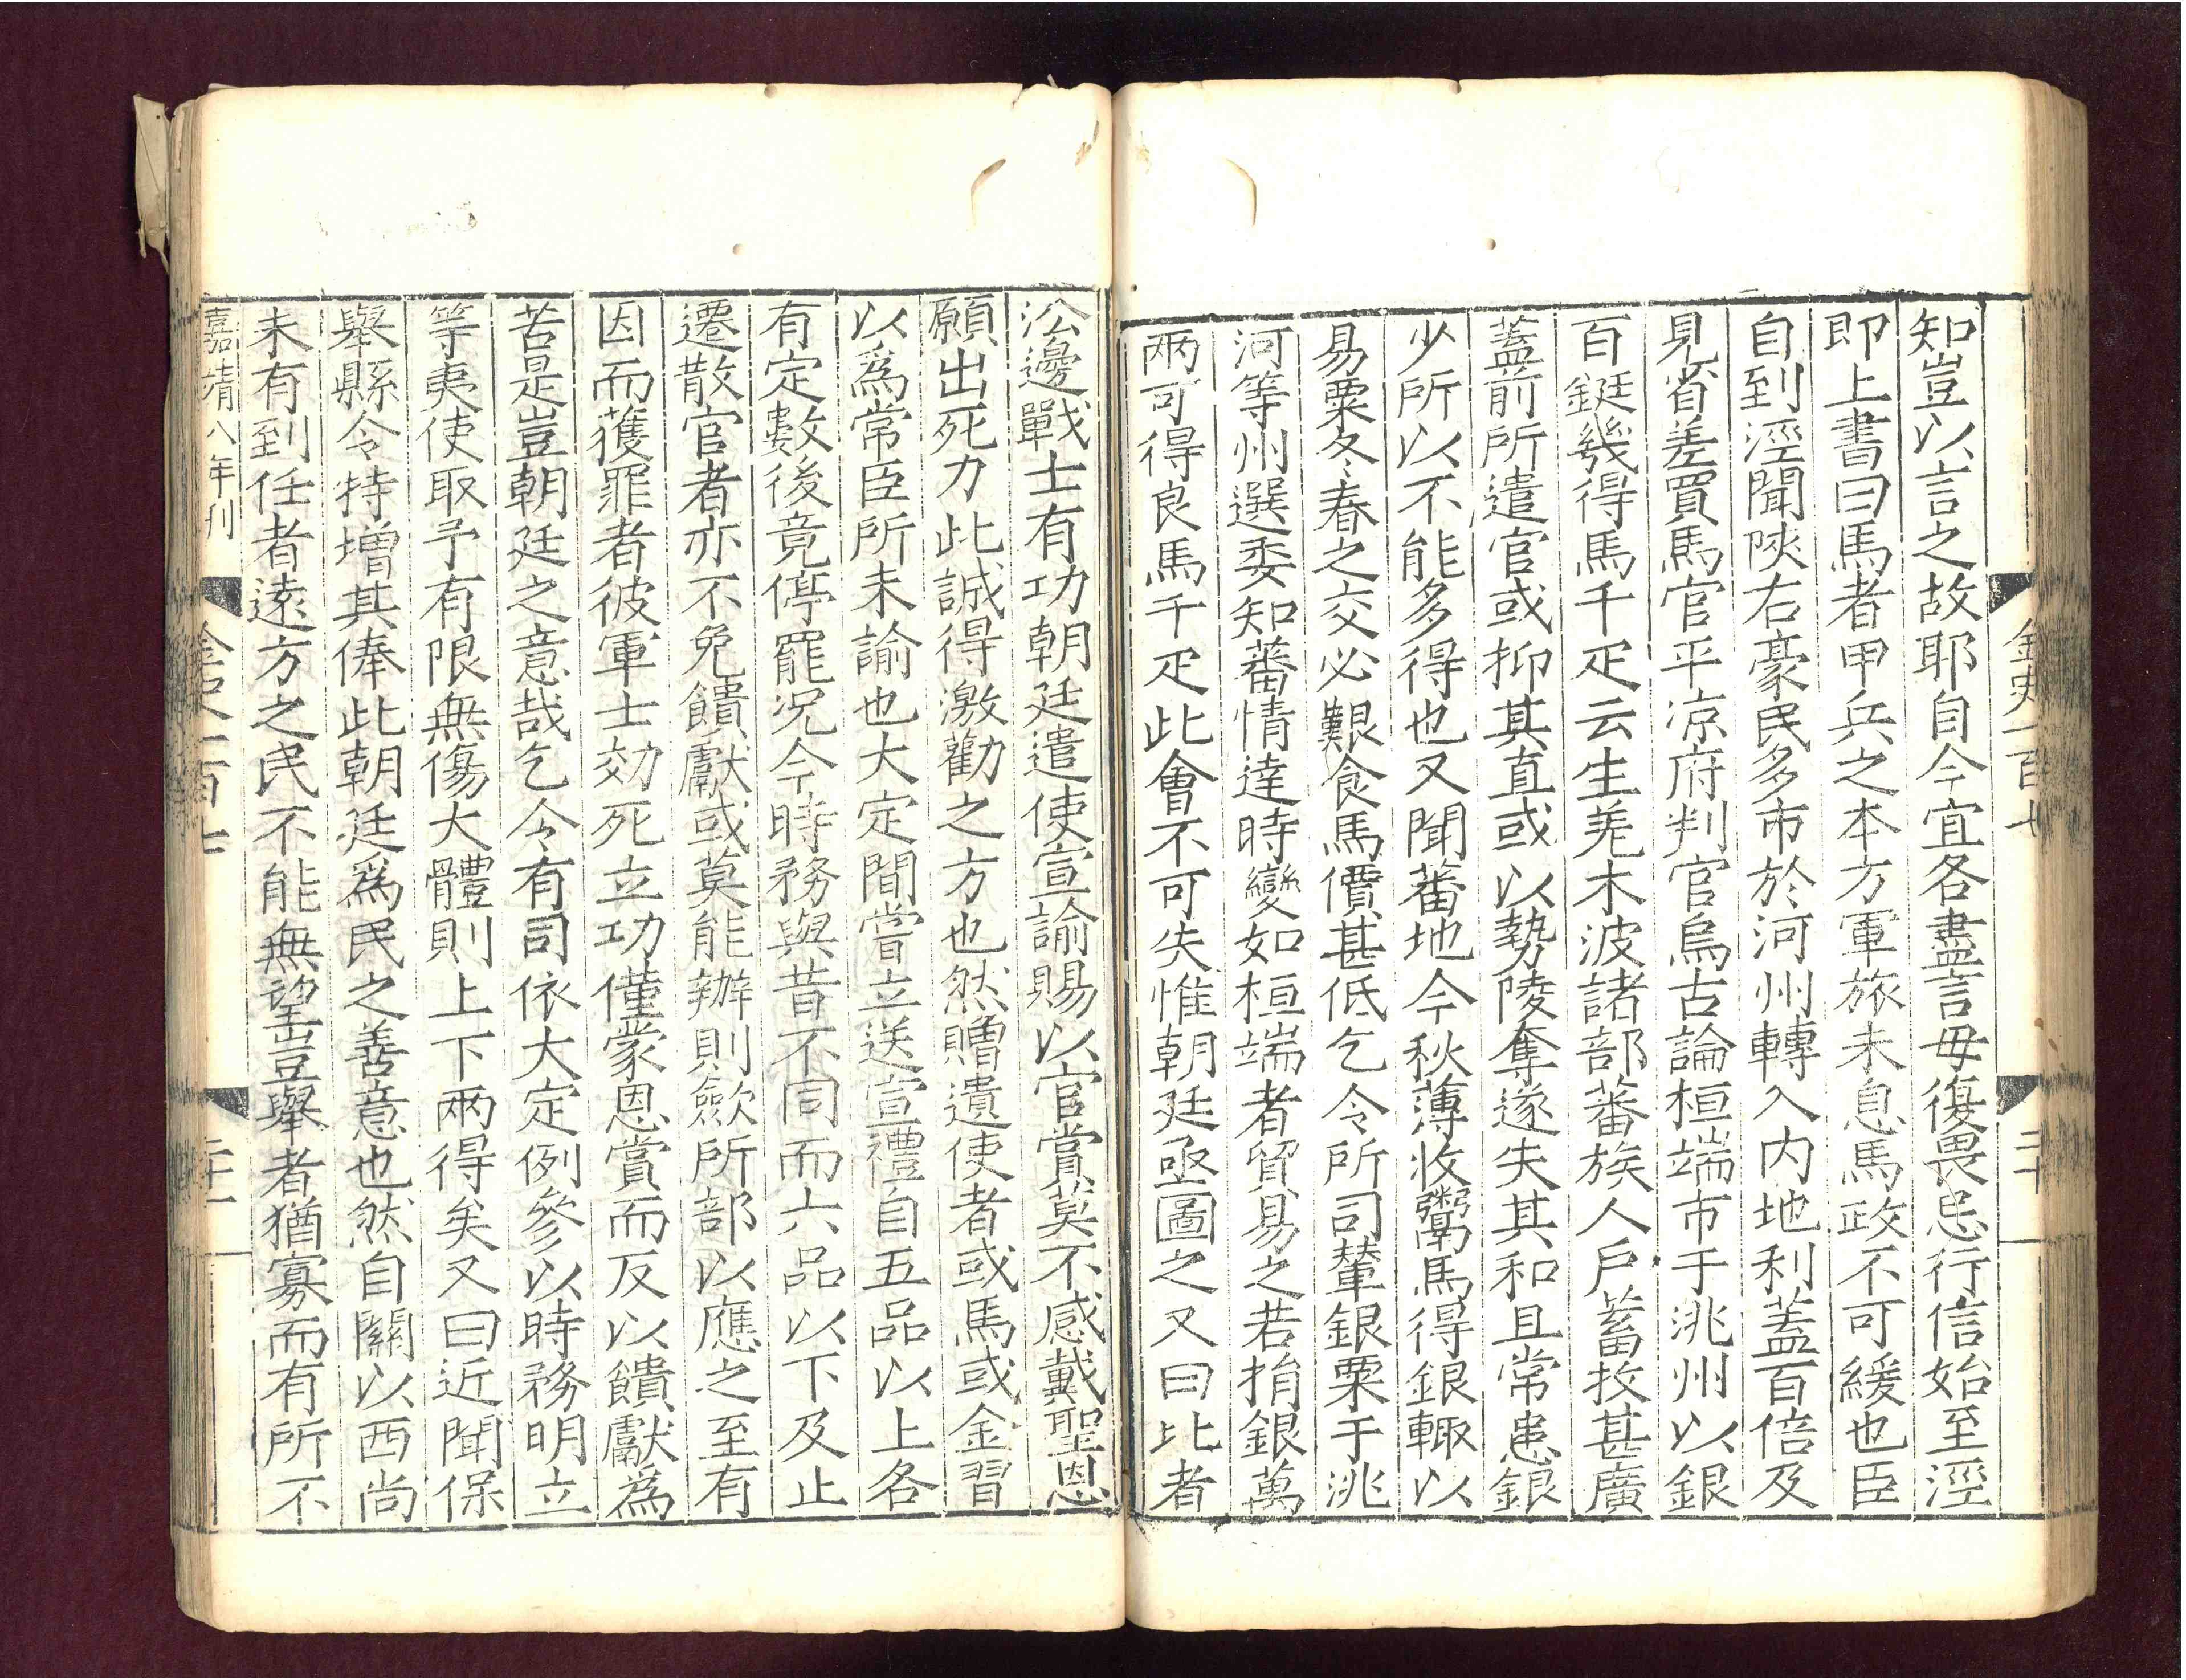 金史一百七
二十
知豈以言之故耶自今宜各盡言毋復畏忌行信始至涇
即上書曰馬者甲兵之本方軍旅未息馬政不可緩也臣
自到涇聞陝右豪民多市於河州轉入内地利蓋百倍及
見省差買馬官平凉府判官烏古論桓端市于洮州以銀
百鋌幾得馬千疋云生羌木波諸部蕃族人戶蓄牧甚廣
蓋前所遣官或抑其直或以勢陵奪遂失其和且常患銀
少所以不能多得也又聞蕃地今秋薄收鬻馬得銀輙以
易粟冬春之交必艱食馬價甚低乞令所司輦銀粟于洮
河等州選委知蕃情達時變如桓端者貿易之若捐銀萬
兩可得良馬千疋此會不可失惟朝廷亟圖之又曰比者
㳂邊戰士有功朝廷遣使宣諭賜以官賞莫不感戴聖恩
願出死力此誠得激勸之方也然贈遺使者或馬或金習
以爲常臣所未諭也大定間嘗立送宣禮自五品以上各
有定數後竟停罷況今時務與昔不同而六品以下及止
遷散官者亦不免饋獻或莫能辦則歛所部以應之至有
因而獲罪者彼軍士効死立功僅蒙恩賞而反以饋獻爲
苦是豈朝廷之意哉乞令有司依大定例參以時務明立
等夷使取予有限無傷大體則上下兩得矣又曰近聞保
舉縣令特增其俸此朝廷爲民之善意也然自關以西尚
未有到任者遠方之民不能無望豈舉者猶寡而有所不
嘉靖八年刊
金史一百七
二十一